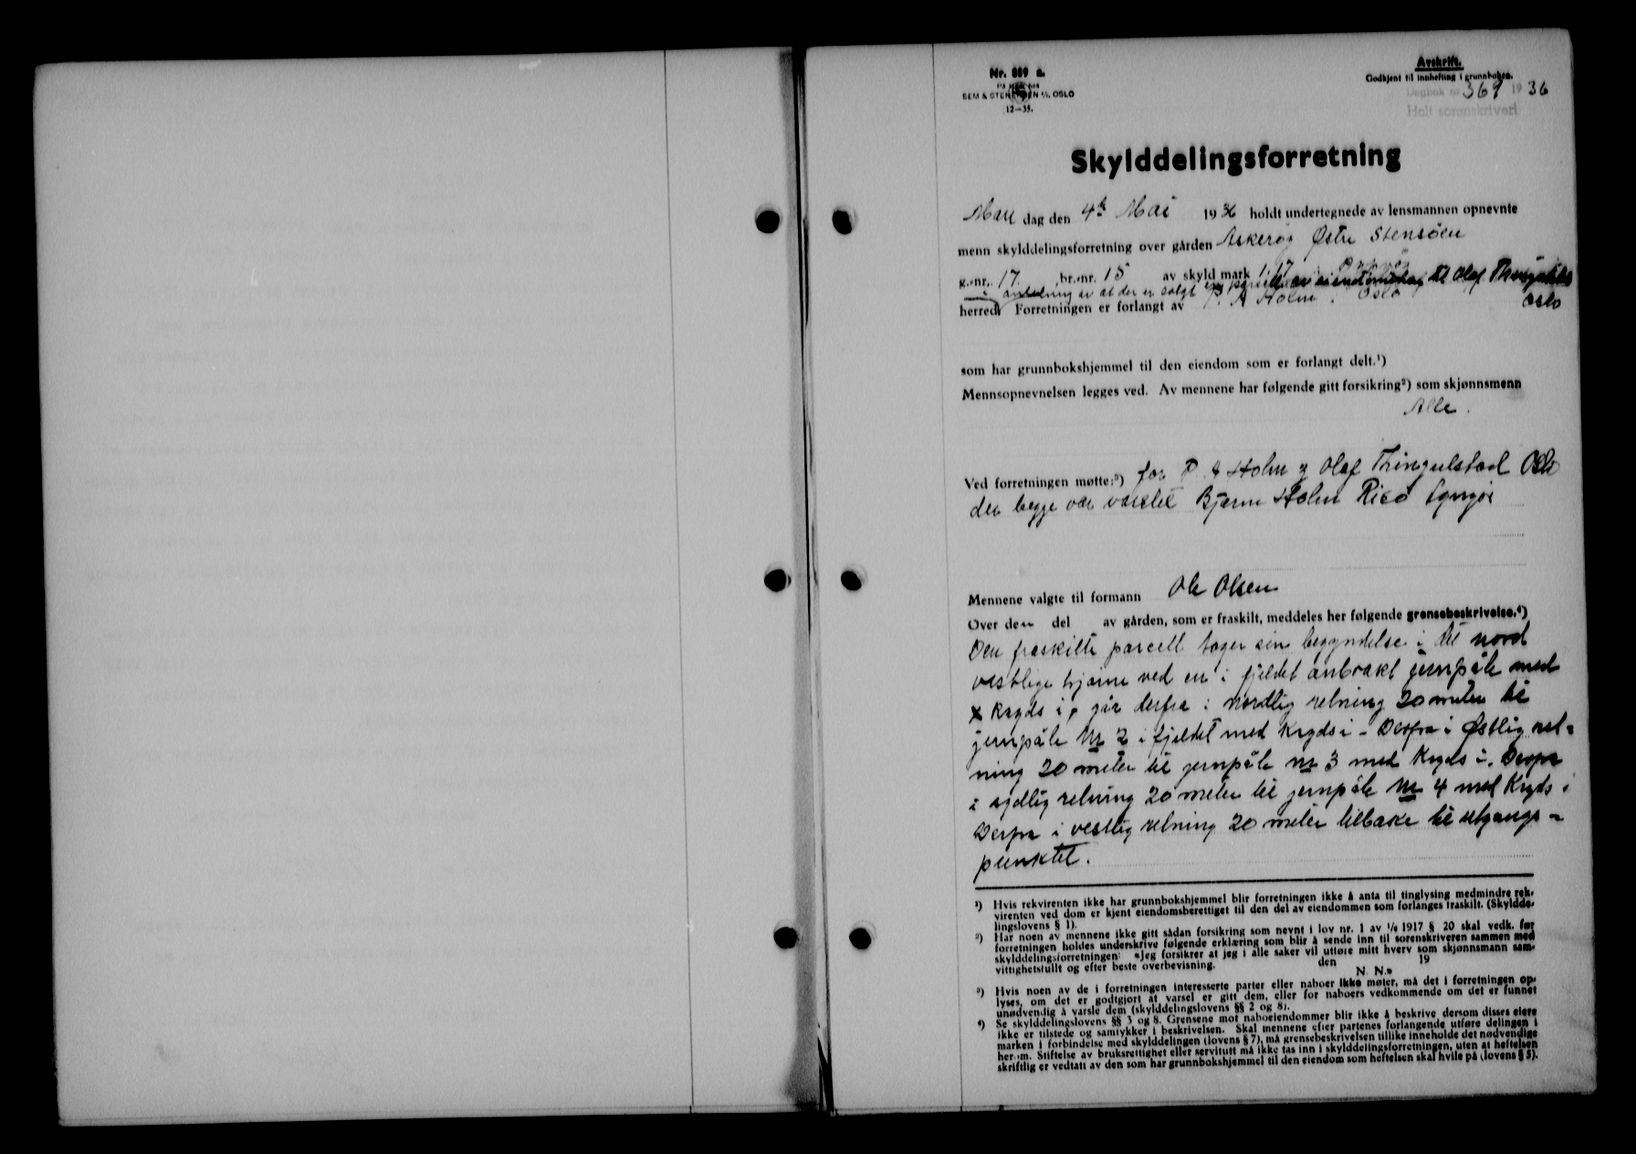 Nr. 889 a.
SEM & STENERSEN A/S, OSLO
12—35.
Avskrift.
Godkjent til innhefting i grunnboken.
Dagbok nr 369 19 36
Holt sorenskriveri
Skylddelingsforretning
Man dag den 4de Mai 1936 holdt undertegnede av lensmannen opnevnte
menn skylddelingsforretning over gården Askerøy Østre Stensöen
g.-nr. 17 , br.-nr. 15 av skyld mark
i anledning av at der er solgt til Olaf Thingulstad
herred. Forretningen er forlangt av P. A Holm . Oslo Oslo
som har grunnbokshjemmel til den eiendom som er forlangt delt.¹)
Mennsopnevnelsen legges ved. Av mennene har følgende gitt forsikring²) som skjønnsmenn
Alle.
Ved forretningen møtte:³) for P. A Holm og Olaf Thingulstad Oslo
der begge var varslet Bjarne Holm Risö Lyngör
Mennene valgte til formann Ole Olsen
Over den del av gården, som er fraskilt, meddeles her følgende grensebeskrivelse.⁴)
Den fraskilte parcell tager sin begyndelse i det nord
vestlige hjørne ved en i fjeldet anbrakt jernpåle med
x Kryds i, går derfra i nordlig retning 20 meter til
jernpåle nr 2 i fjeldet med Kryds i - Derfra i Østlig ret-
ning 20 meter til jernpåle nr 3 med Kryds i. Derfra
i sydlig retning 20 meter til jernpåle nr 4 med Kryds i
Derfra i vestlig retning 20 meter tilbake til utgangs-
punktet.
¹) Hvis rekvirenten ikke har grunnbokshjemmel blir forretningen ikke å anta til tinglysing medmindre rek-
virenten ved dom er kjent eiendomsberettiget til den del av eiendommen som forlanges fraskilt. (Skyldde-
lingslovens § 1).
²) Har noen av mennene ikke gitt sådan forsikring som nevnt i lov nr. 1 av 1/6 1917 § 20 skal vedk. før
forretningen holdes underskrive følgende erklæring som blir å sende inn til sorenskriveren sammen med
skylddelingsforretningen: «Jeg forsikrer at jeg i alle saker vil utføre mitt hverv som skjønnsmann sam-
vittighetsfullt og efter beste overbevisning. den 19
N. N.»
³) Hvis noen av de i forretningen interesserte parter eller naboer ikke møter, må det i forretningen op-
lyses, om det er godtgjort at varsel er gitt dem, eller for naboers vedkommende om det er funnet
unødvendig å varsle dem (skylddelingslovens §§ 2 og 8).
⁴) Se skylddelingslovens §§ 3 og 8. Grensene mot naboeiendommer blir ikke å beskrive dersom disses eiere
ikke er tilstede og samtykker i beskrivelsen. Skal mennene efter partenes forlangende utføre delingen i
marken i forbindelse med skylddelingen (lovens § 7), må grensebeskrivelsen tillike inneholde det nødvendige
herom. Stiftelse av bruksrettighet eller servitutt må ikke tas inn i skylddelingsforretningen, uten at heftelsen
skriftlig er vedtatt av den som har grunnbokshjemmel til den eiendom som heftelsen skal hvile på (lovens § 5).